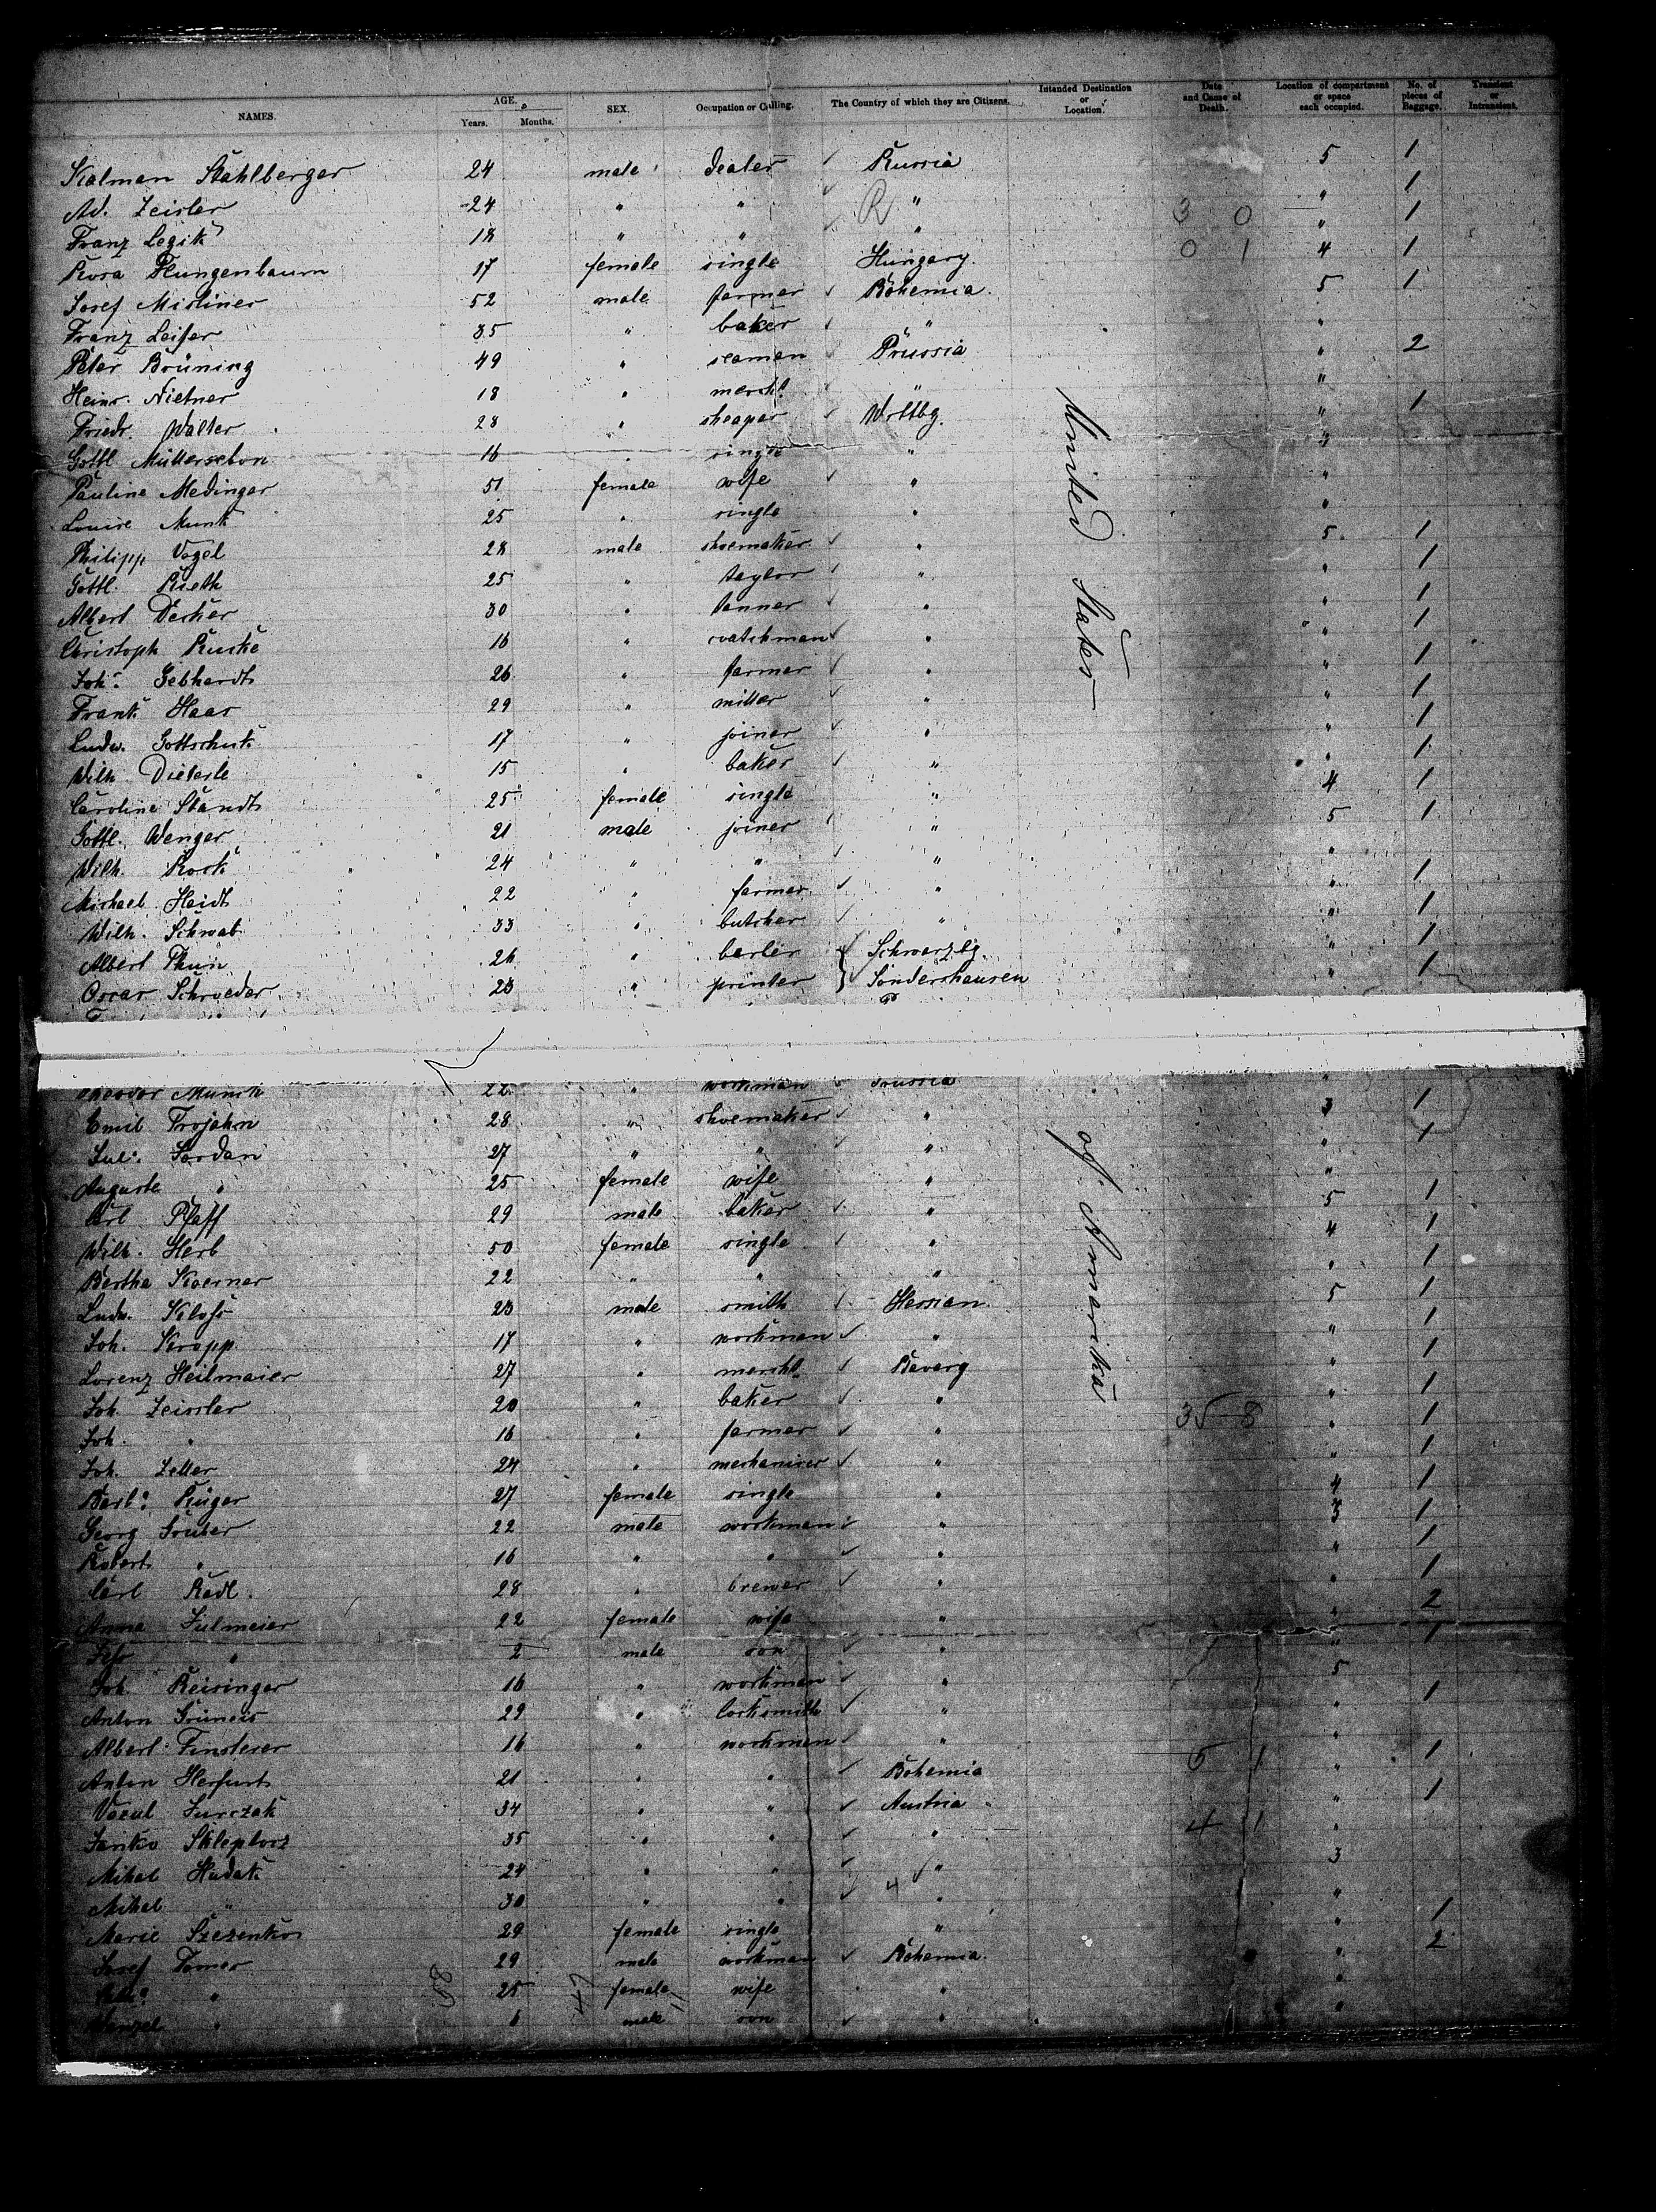 NAMES. AGE. Years. Months. SEX. Occupation or Calling. The Country of which they are Citizens. Intended Destination or Location. Date and Cause of Death. Location of compartment or space each occupied. No. of pieces of Baggage. Transient or Intransient.
Kalman Stahlberger 24 male dealer ✓ Russia 5 1
Ad. Zeisler 24 " " ✓ R " " 1
Franz Legik 18 " " ✓ " 3 0 " 1
Rosa Klungenbaum 17 female single Hungary 0 1 4 1
Josef Misliner 52 male farmer ✓ Bohemia. 5 1
Franz Leifer 35 " baker ✓ " "
Peter Brüning 49 " seaman ✓ Prussia " 2
Heinr. Nietner 18 " mercht. ✓ " "
Friedr. Walter 28 " sheaper ✓ Wrttbg. " 1
Gottl. 16 " single " "
Pauline Medinger 51 female wife ✓ " "
Louise Munk 25 " single " "
Philipp Vogel 28 male shoemaker ✓ " 5 1
Gottl. Rieth 25 " taylor ✓ " " 1
Albert Decker 30 " tanner ✓ " " 1
Christoph Ruske 16 " watchman ✓ " " 1
Joh. Gebhardt 26 " farmer ✓ " " 1
Frank Haas 29 " miller ✓ " " 1
Ludw. Gottschick 17 " joiner ✓ " " 1
Wilh. Dieterle 15 " baker ✓ " " 1
Caroline Standt 25 female single " 4 1
Gottl. Wenger 21 male joiner ✓ " 5 1
Wilh. Rock 24 " " ✓ " "
Michael Haidt 22 " farmer ✓ " " 1
Wilh. Schwab 33 " butcher ✓ " " 1
Albert Thun 26 " barber ✓ Schwarzbg. " 1
Oscar Schroeder 23 " printer ✓ Sondershausen " 1
United States
Theodor Munch 22 " workman ✓ Prussia "
Emil Trojahn 28 " shoemaker ✓ " 3 1
Jul. Jordan 27 " " ✓ " " 1
Auguste " 25 female wife " "
Carl Pfaff 29 male baker ✓ " 5 1
Wilh. Herb 50 female single ✓ " 4 1
Bertha Koerner 22 " " " " 1
Ludw. Klohs 23 male smith ✓ Hessian 5 1
Joh. Kropp 17 " workman ✓ " " 1
Lorenz Heilmaier 27 " mercht. ✓ Bavarg " 1
Joh. Zeissler 20 " baker ✓ " " 1
Joh. " 16 " farmer ✓ " 35 - 8 " 1
Joh. Zeller 24 " mechaniser ✓ " " 1
Barb. Rüger 27 female single " 4 1
Georg Gruber 22 male workman ✓ " 3 1
Robert " 16 " " ✓ " " 1
Carl Radl. 28 " brewer ✓ " " 1
Anna Julmeier 22 female wife " " 2
" 2 male son " " 1
Joh. Reisinger 16 " workman ✓ " 5
Anton Grüneis 29 " locksmith ✓ " " 1
Albert Finsterer 16 " workman ✓ " "
Anton Herfurt 21 " " ✓ Bohemia 5 1 " 1
Jurczak 34 " " ✓ Austria " 1
Janko 35 " " ✓ " 4 1 "
Mihal Hudak 24 " " ✓ " 3
Mihal " 30 " " ✓ 4 " "
Marie 29 female single " " 1
Josef Tomes 29 male workman ✓ Bohemia " 2
" 25 female wife " "
Wenzel " 6 male son ✓ " "
of Amerika